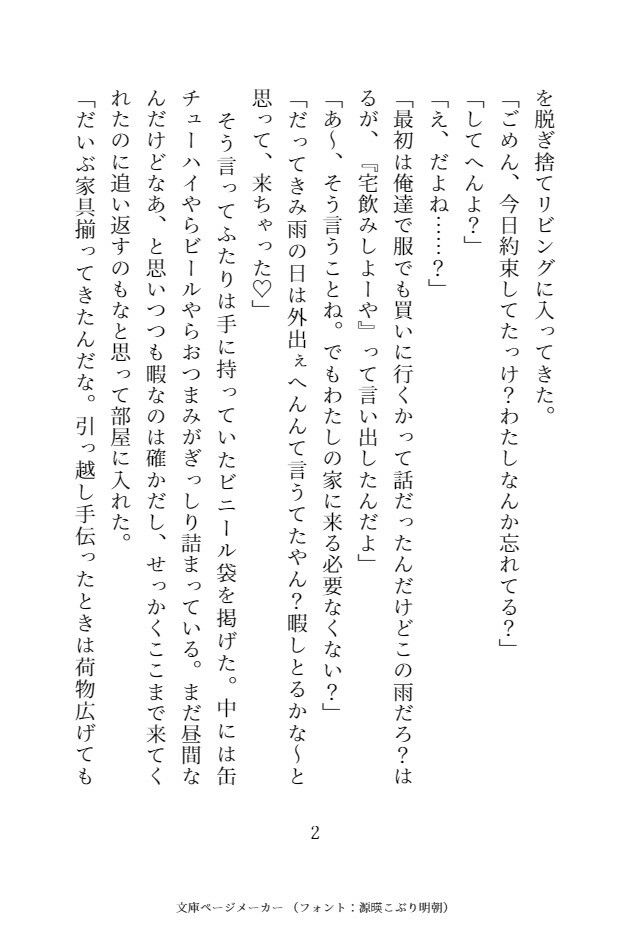 を脱ぎ捨てリビングに入ってきた。
「ごめん、今日約束してたっけ？わたしなんか忘れてる？」
「してへんよ？」
「え、だよね……？」
「最初は俺達で服でも買いに行くかって話だったんだけどこの雨だろ？は
るが、『宅飲みしよーや』って言い出したんだよ」
「あ〜、そう言うことね。でもわたしの家に来る必要なくない？」
「だってきみ雨の日は外出ぇへんて言うてたやん？暇しとるかな〜と
思って、来ちゃった♡」
　そう言ってふたりは手に持っていたビニール袋を掲げた。中には缶
チューハイやらビールやらおつまみがぎっしり詰まっている。まだ昼間な
んだけどなあ、と思いつつも暇なのは確かだし、せっかくここまで来てく
れたのに追い返すのもなと思って部屋に入れた。
「だいぶ家具揃ってきたんだな。引っ越し手伝ったときは荷物広げても
2
文庫ページメーカー（フォント：源暎こぶり明朝）